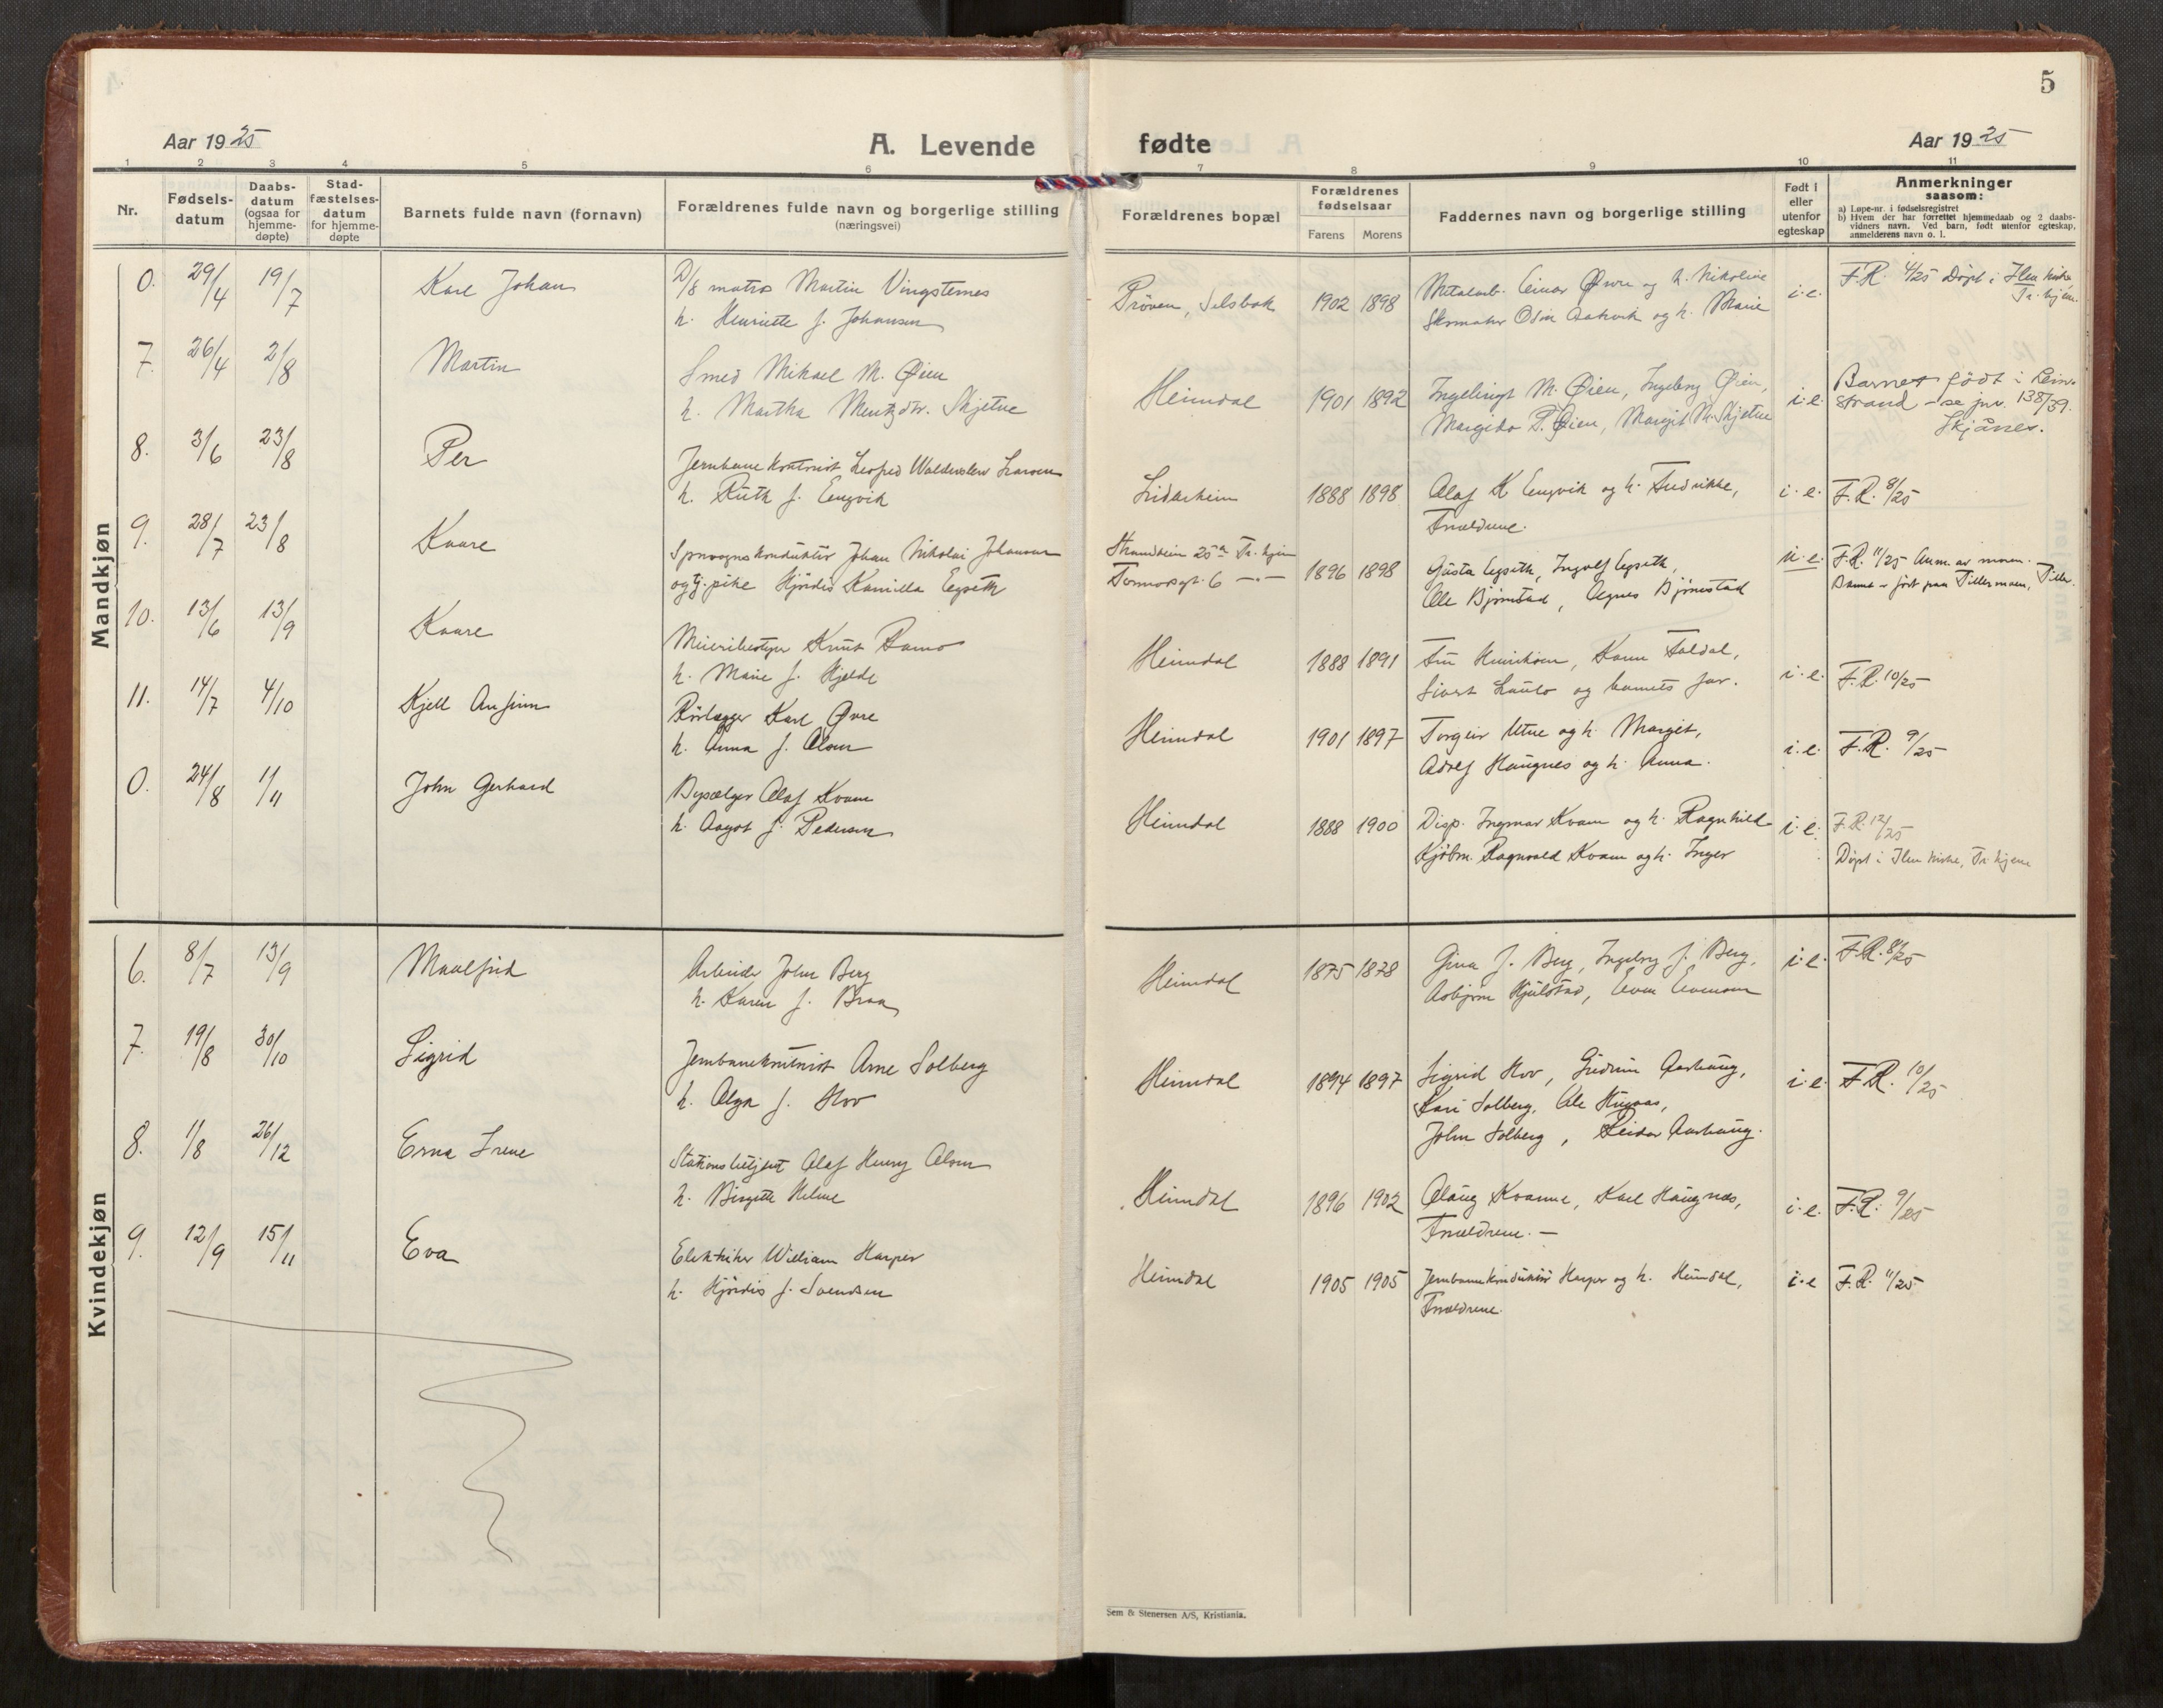 5
Aar 1925
A. Levende
fødte
Aar 1925
1 2 3 4 5 6 7 8 9 10 11
Nr.
Fødsels-
datum
Daabs-
datum
(ogsaa for
hjemme-
døpte)
Stad-
fæstelses-
datum
for hjemme-
døpte
Barnets fulde navn (fornavn)
Forældrenes fulde navn og borgerlige stilling
(næringsvei)
Forældrenes bopæl
Forældrenes
fødselsaar
Farens Morens
Faddernes navn og borgerlige stilling
Født i
eller
utenfor
egteskap
Anmerkninger
saasom:
a) Løpe-nr. i fødselsregistret
b) Hvem der har forrettet hjemmedaab og 2 daabs-
vidners navn. Ved barn, født utenfor egteskap,
anmelderens navn o. l.
Mandkjøn
0. 29/4 19/7 Karl Johan
D/S matros Martin Vingsternes
h. Henriette f. Johansen
Prøven, Selsbak 1902 1898
Metalarb. Einar Øvre og h. Nikoline
Skomaker Odin og h. Marie
i.e. F.R. 4/25 Døpt i Ilen kirke
Tr.hjem.
7. 26/4 2/8 Martin
Smed Mikael M. Øien
h. Martha Mentzdtr. Skjetne
Heimdal 1901 1892
Ingebrigt M. Øien, Ingeborg Øien,
P. Øien, Margit M. Skjetne
i.e. Barnet født i Lein-
strand - se jnr. 138/39.
Skjånes.
8. 3/6 23/8 Per
Jernbane kontorist Waldemar Larsen
h. Ruth f. Engvik
1888 1898
Olaf K Engvik og h. Fredrikke,
Forældrene.
i.e. F.R. 8/25
9. 28/7 23/8 Kaare
Sporvognskonduktør Johan Nikolai Johansen
og tj.pike Hjördis Kamilla Egseth
Strandveien 25a Tr.hjem
6 -"- 1896 1898
Gösta Egseth, Ingolf Egseth,
Ole Bjørnstad, Agnes Bjørnstad
u.e. F.R. 11/25 Anm. av moren.
Barnet er født paa Tillermoen, Tiller.
10. 13/6 13/9 Kaare
Meieribestyrer Knut Ramo
h. Marie f. Hjelde
Heimdal 1888 1891
Henriksen, Foldal,
Sivert og barnets far.
i.e. F.R. 10/25
11. 14/7 4/10 Kjell Anfinn
Rörlægger Karl Øvre
h. Anna f. Olsen
Heimdal 1901 1897
Torgeir Utne og h. Margit,
Adolf Haugnes og h. Anna.
i.e. F.R. 9/25
0. 24/8 1/11 John Gerhard
Bysælger Olaf Kvam
h. Aagot f. Pedersen
Heimdal 1888 1900
Disp. Ingmar Kvam og h. Ragnhild
Kjöbm. Ragnvald Kvam og h. Inger
i.e. F.R. 12/25
Døpt i Ilen kirke, Tr.hjem
Kvindekjøn
6. 8/7 13/9 Maalfrid
Arbeider John Berg
h. Karen f. Braa
Heimdal 1875 1878
Gina J. Berg, Ingeborg J. Berg,
Asbjørn Hjulstad, Even Evensen
i.e. F.R. 8/25
7. 19/8 30/10 Sigrid
Jernbanekontorist Arne Solberg
h. Olga f. Hov
Heimdal 1894 1897
Sigrid Hov, Gudrun Aarhaug,
Kari Solberg, Ole
John Solberg, Reidar Aarhaug.
i.e. F.R. 10/25
8. 1/8 26/12 Erna Irene
Stationsbetjent Olaf Henry Olsen
h. Birgitte Helene
Heimdal 1896 1902
Olaug Kvamme, Karl Haugnæs,
Forældrene. -
i.e. F.R. 9/25
9. 12/9 15/11 Eva
Elektriker William Harper
h. Hjördis f. Svendsen
Heimdal 1905 1905
Jernbanekonduktør Harper og h. Heimdal,
Forældrene.
i.e F.R. 11/25
Sem & Stenersen A/S, Kristiania.